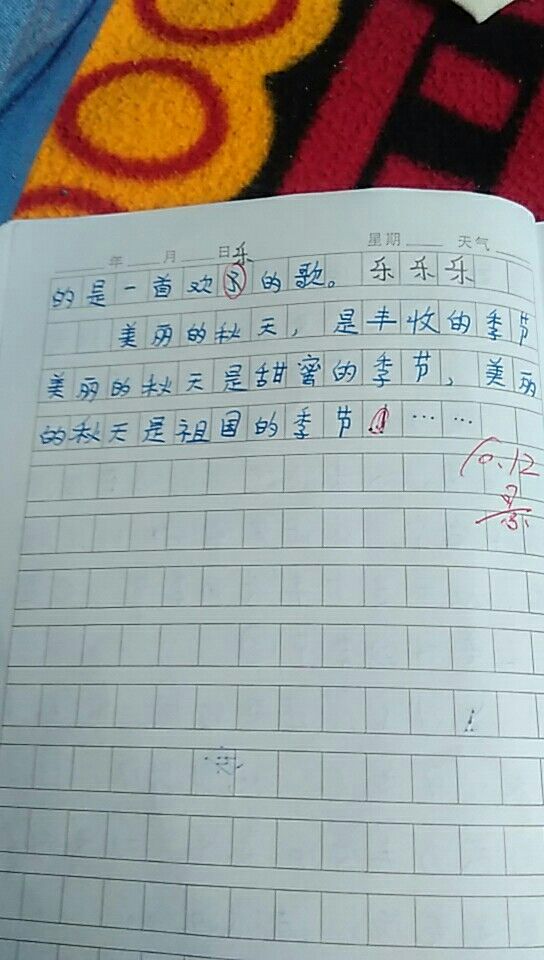 年 月 日 星期 天气
乐
的是一首欢的歌。 乐乐乐
美丽的秋天，是丰收的季节
美丽的秋天是甜蜜的季节，美丽
的秋天是祖国的季节……
10.12